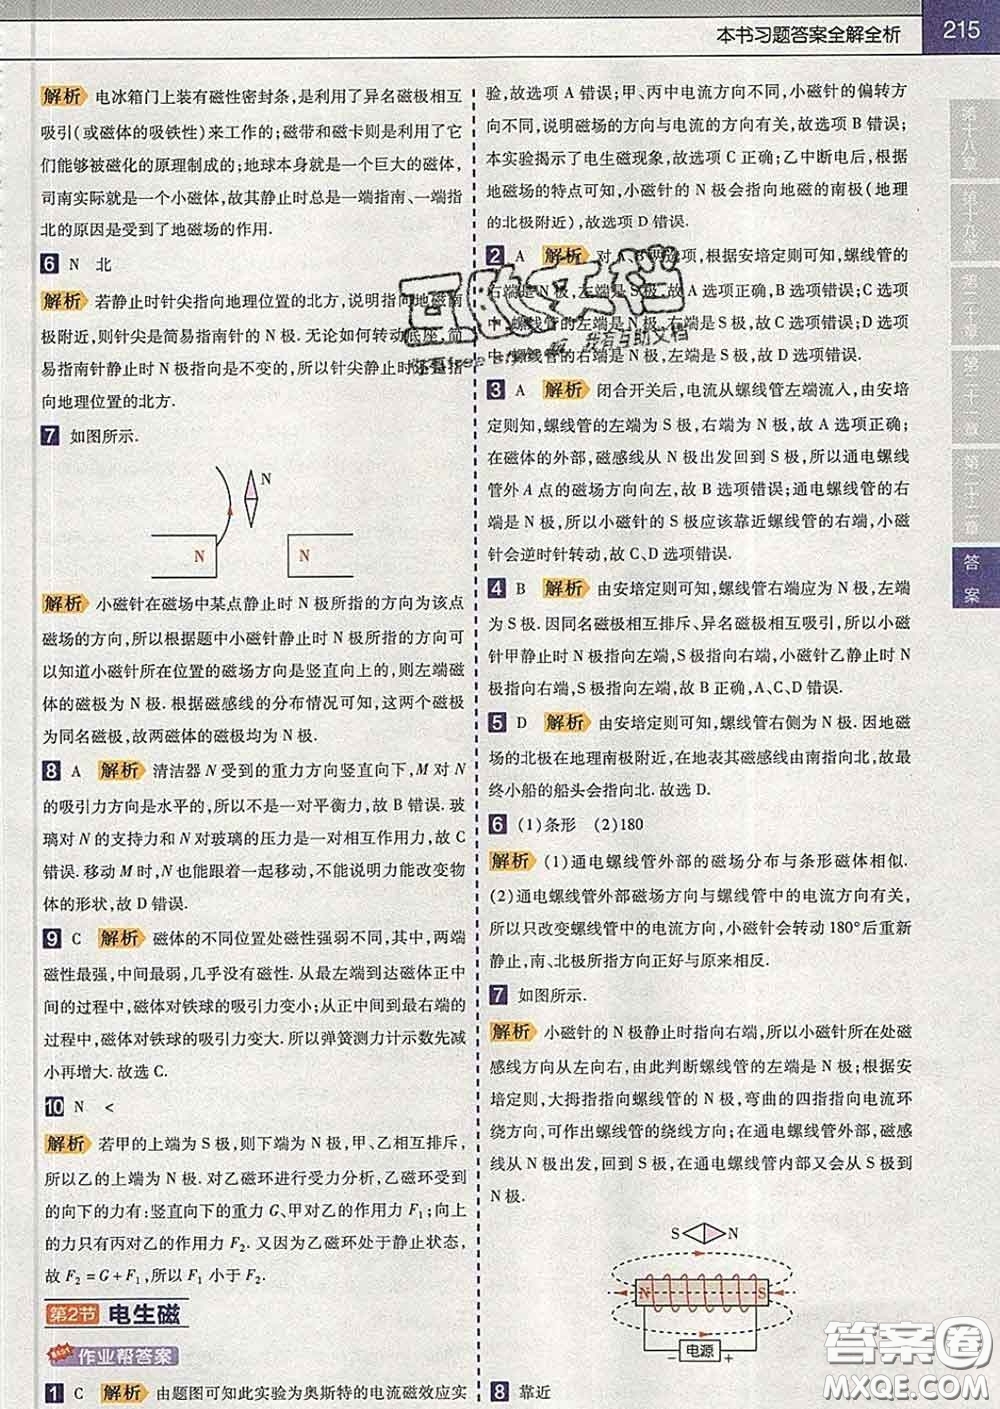 本书习题答案全解全析
215
解析 电冰箱门上装有磁性密封条,是利用了异名磁极相互
吸引(或磁体的吸铁性)来工作的;磁带和磁卡则是利用了它
们能够被磁化的原理制成的;地球本身就是一个巨大的磁体,
司南实际就是一个小磁体,故其静止时总是一端指南、一端指
北的原因是受到了地磁场的作用.
6 N 北
解析 若静止时针尖指向地理位置的北方,说明指向地磁南
极附近,则针尖是简易指南针的 N 极. 无论如何转动底座,简
易指南针静止时 N 极指向是不变的,所以针尖静止时还是指
向地理位置的北方.
7 如图所示.
N
N
解析 小磁针在磁场中某点静止时 N 极所指的方向为该点
磁场的方向,所以根据题中小磁针静止时 N 极所指的方向可
以知道小磁针所在位置的磁场方向是竖直向上的,则左端磁
体的磁极为 N 极. 根据磁感线的分布情况可知,这两个磁极
为同名磁极,故两磁体的磁极均为 N 极.
8 A 解析 清洁器 N 受到的重力方向竖直向下,M 对 N
的吸引力方向是水平的,所以不是一对平衡力,故 B 错误. 玻
璃对 N 的支持力和 N 对玻璃的压力是一对相互作用力,故 C
错误. 移动 M 时,N 也能跟着一起运动,不能说明力能改变物
体的形状,故 D 错误.
9 C 解析 磁体的不同位置处磁性强弱不同,其中,两端
磁性最强,中间最弱,几乎没有磁性. 从最左端到达磁体正中
间的过程中,磁体对铁球的吸引力变小;从正中间到最右端的
过程中,磁体对铁球的吸引力变大. 所以弹簧测力计示数先减
小再增大. 故选 C.
10 N <
解析 若甲的上端为 S 极,则下端为 N 极,甲、乙相互排斥,
所以乙的上端为 N 极. 对乙磁环进行受力分析,乙磁环受到
的向下的力有:竖直向下的重力 G、甲对乙的作用力 F1;向上
的力只有丙对乙的作用力 F2. 又因为乙磁环处于静止状态,
故 F2 = G + F1,所以 F1 小于 F2.
第2节 电生磁
作业帮答案
1 C 解析 由题图可知此实验为奥斯特的电流磁效应实
验,故选项 A 错误;甲、丙中电流方向不同,小磁针的偏转方
向不同,说明磁场的方向与电流的方向有关,故选项 B 错误;
本实验揭示了电生磁现象,故选项 C 正确;乙中断电后,根据
地磁场的特点可知,小磁针的 N 极会指向地磁的南极(地理
的北极附近),故选项 D 错误.
2 A 解析 对 A、B 两选项,根据安培定则可知,螺线管的
右端是 N 极,左端是 S 极,故 A 选项正确,B 选项错误;C 选项
中,螺线管的左端是 N 极,右端是 S 极,故 C 选项错误;D 选项
中,螺线管的右端是 N 极,左端是 S 极,故 D 选项错误.
3 A 解析 闭合开关后,电流从螺线管左端流入,由安培
定则知,螺线管的左端为 S 极,右端为 N 极,故 A 选项正确;
在磁体的外部,磁感线从 N 极出发回到 S 极,所以通电螺线
管外 A 点的磁场方向向左,故 B 选项错误;通电螺线管的右
端是 N 极,所以小磁针的 S 极应该靠近螺线管的右端,小磁
针会逆时针转动,故 C、D 选项错误.
4 B 解析 由安培定则可知,螺线管右端应为 N 极,左端
为 S 极. 因同名磁极相互排斥、异名磁极相互吸引,所以小磁
针甲静止时 N 极指向左端,S 极指向右端,小磁针乙静止时 N
极指向右端,S 极指向左端,故 B 正确,A、C、D 错误.
5 D 解析 由安培定则可知,螺线管右侧为 N 极. 因地磁
场的北极在地理南极附近,在地表其磁感线由南指向北,故最
终小船的船头会指向北. 故选 D.
6 (1)条形 (2)180
解析 (1)通电螺线管外部的磁场分布与条形磁体相似.
(2)通电螺线管外部磁场方向与螺线管中的电流方向有关,
所以只改变螺线管中的电流方向,小磁针会转动 180°后重新
静止,南、北极所指方向正好与原来相反.
7 如图所示.
解析 小磁针的 N 极静止时指向右端,所以小磁针所在处磁
感线方向从左向右,由此判断螺线管的左端是 N 极,根据安
培定则,大拇指指向螺线管的 N 极,弯曲的四指指向电流环
绕方向,可作出螺线管的绕线方向;在通电螺线管外部,磁感
线从 N 极出发,回到 S 极,在通电螺线管内部又会从 S 极到
N 极.
S N
N S
电源
8 靠近
第十八章
第十九章
第二十章
第二十一章
第二十二章
答案
答案圈
MXQE.COM